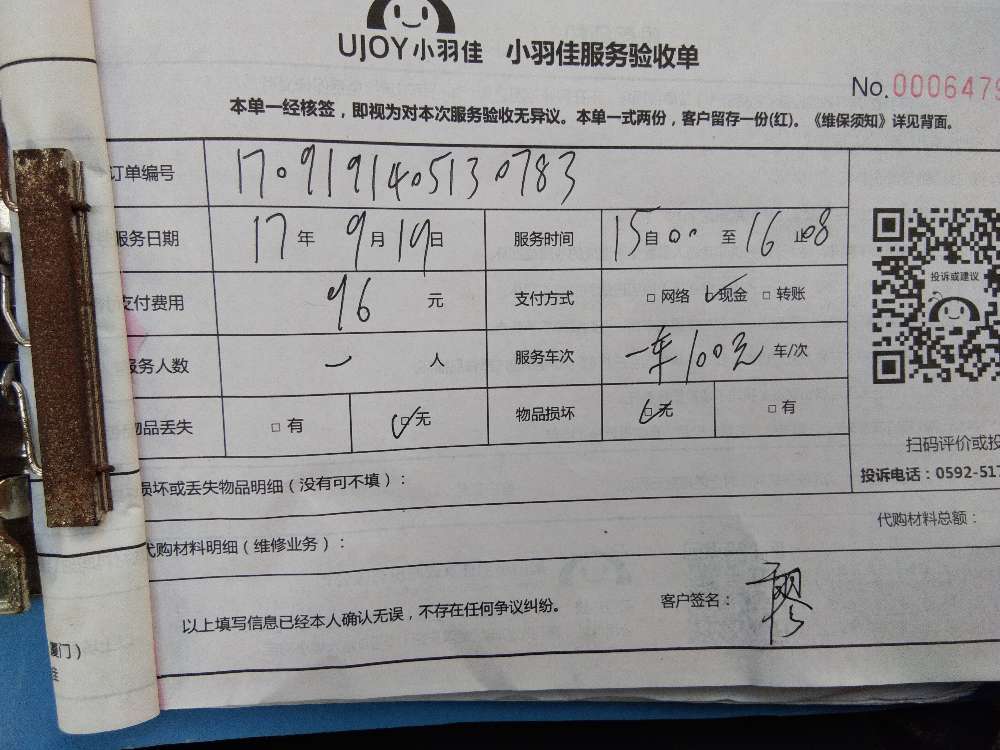 UJOY小羽佳 小羽佳服务验收单
No.0006479
本单一经核签，即视为对本次服务验收无异议。本单一式两份，客户留存一份(红)。《维保须知》详见背面。
订单编号 1709191405130783
服务日期 17年9月19日 服务时间 15自00至16止08
支付费用 96元 支付方式 □网络 ☑现金 □转账
服务人数 一人 服务车次 一车100元 车/次
物品丢失 □有 ☑无 物品损坏 ☑无 □有
投诉或建议
扫码评价或投
投诉电话：0592-517
损坏或丢失物品明细（没有可不填）：
代购材料总额：
代购材料明细（维修业务）：
以上填写信息已经本人确认无误，不存在任何争议纠纷。 客户签名：
厦门）